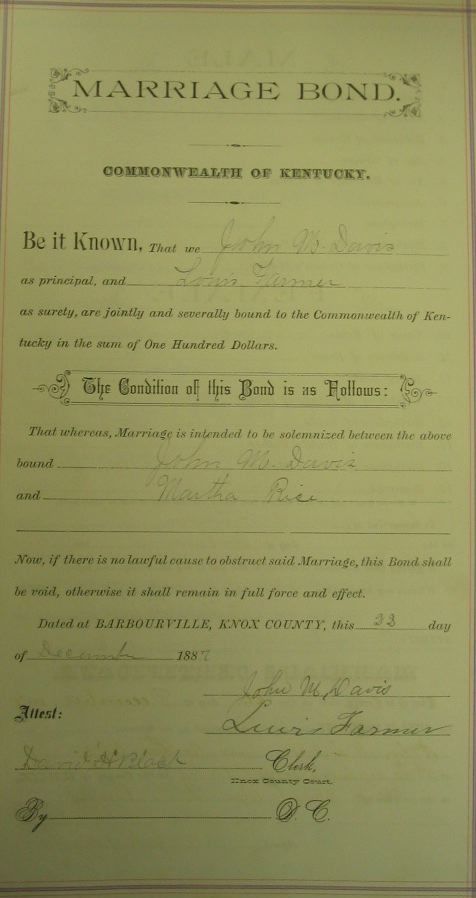 MARRIAGE BOND.
COMMONWEALTH OF KENTUCKY.
Be it Known, That we John M. Davis
as principal, and Louis Farmer
as surety, are jointly and severally bound to the Commonwealth of Ken-
tucky in the sum of One Hundred Dollars.
The Condition of this Bond is as Follows:
That whereas, Marriage is intended to be solemnized between the above
bound John M. Davis
and Martha Rise
Now, if there is no lawful cause to obstruct said Marriage, this Bond shall
be void, otherwise it shall remain in full force and effect.
Dated at BARBOURVILLE, KNOX COUNTY, this day
of December 1887
John M. Davis
Attest: Lewis Farmer
David H Clerk,
Knox County Court.
By D. C.